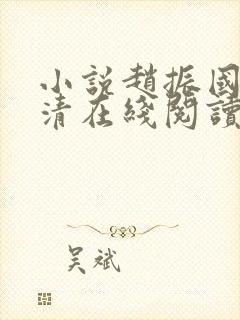 小說趙振國
清在綫閱讀
吴斌